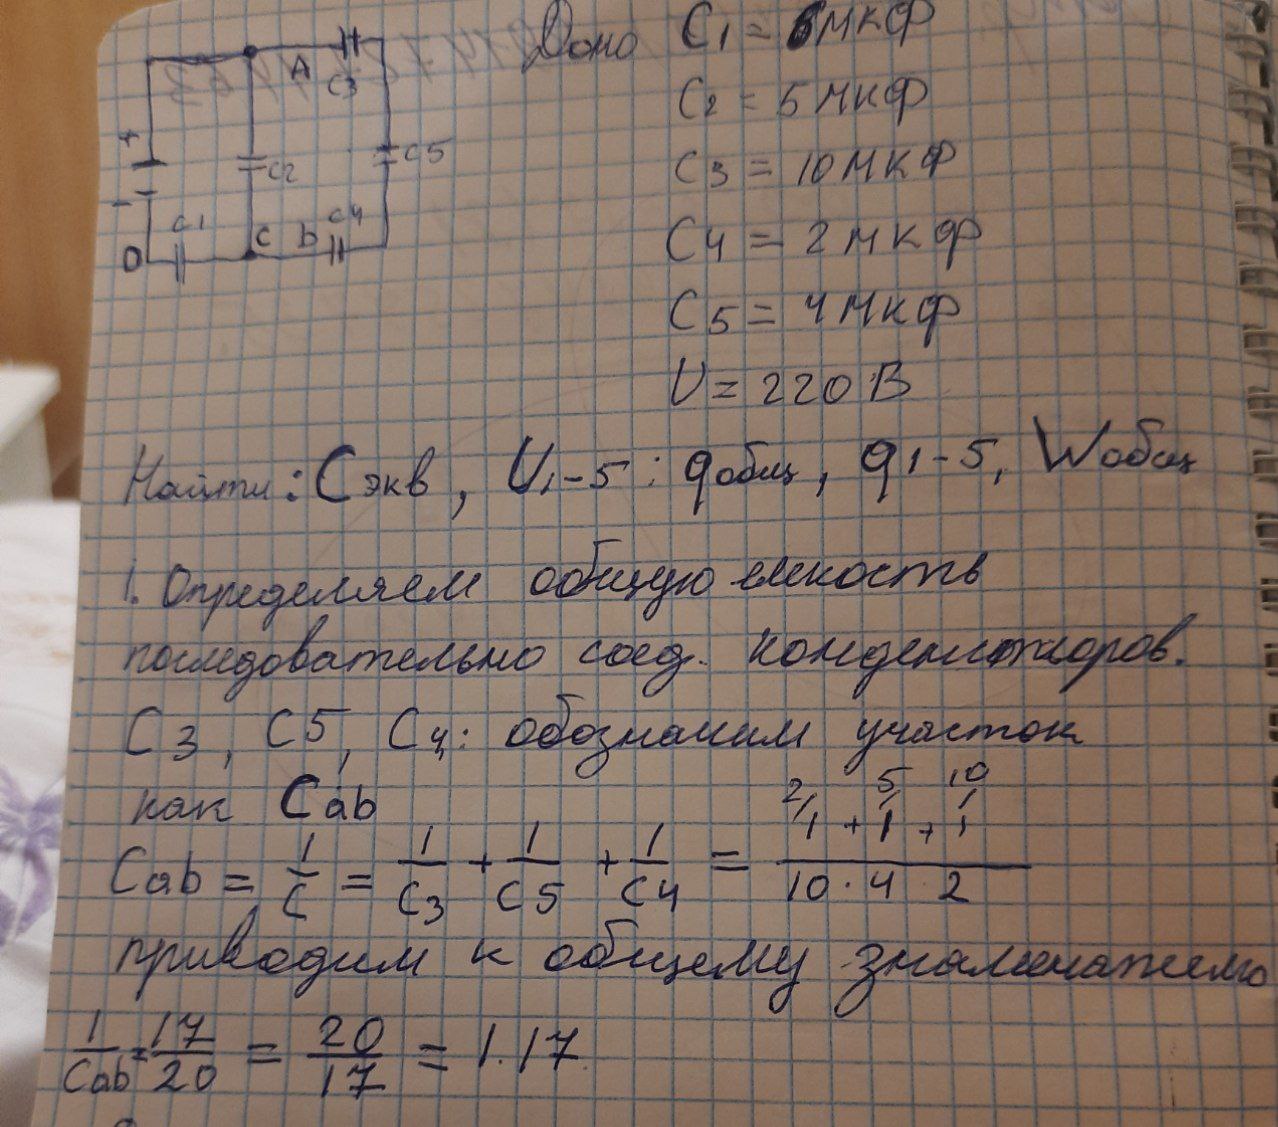 Дано C1 = 6мкф
C2 = 5мкф
C3 = 10мкф
C4 = 2мкф
C5 = 4мкф
U = 220В
+
-
A
C3
C2
C5
C1
C4
C
D
Найти: Cэкв, U1-5; qобщ, q1-5, Wобщ
1. Определяем общую емкость
последовательно соед. конденсаторов.
C3, C5, C4: обозначим участок
как Cab
Cab = 1/C = 1/C3 + 1/C5 + 1/C4 = 2/1 + 5/1 + 10/1
10 · 4 2
приводим к общему знаменателю
1/Cab = 17/20 = 20/17 = 1.17